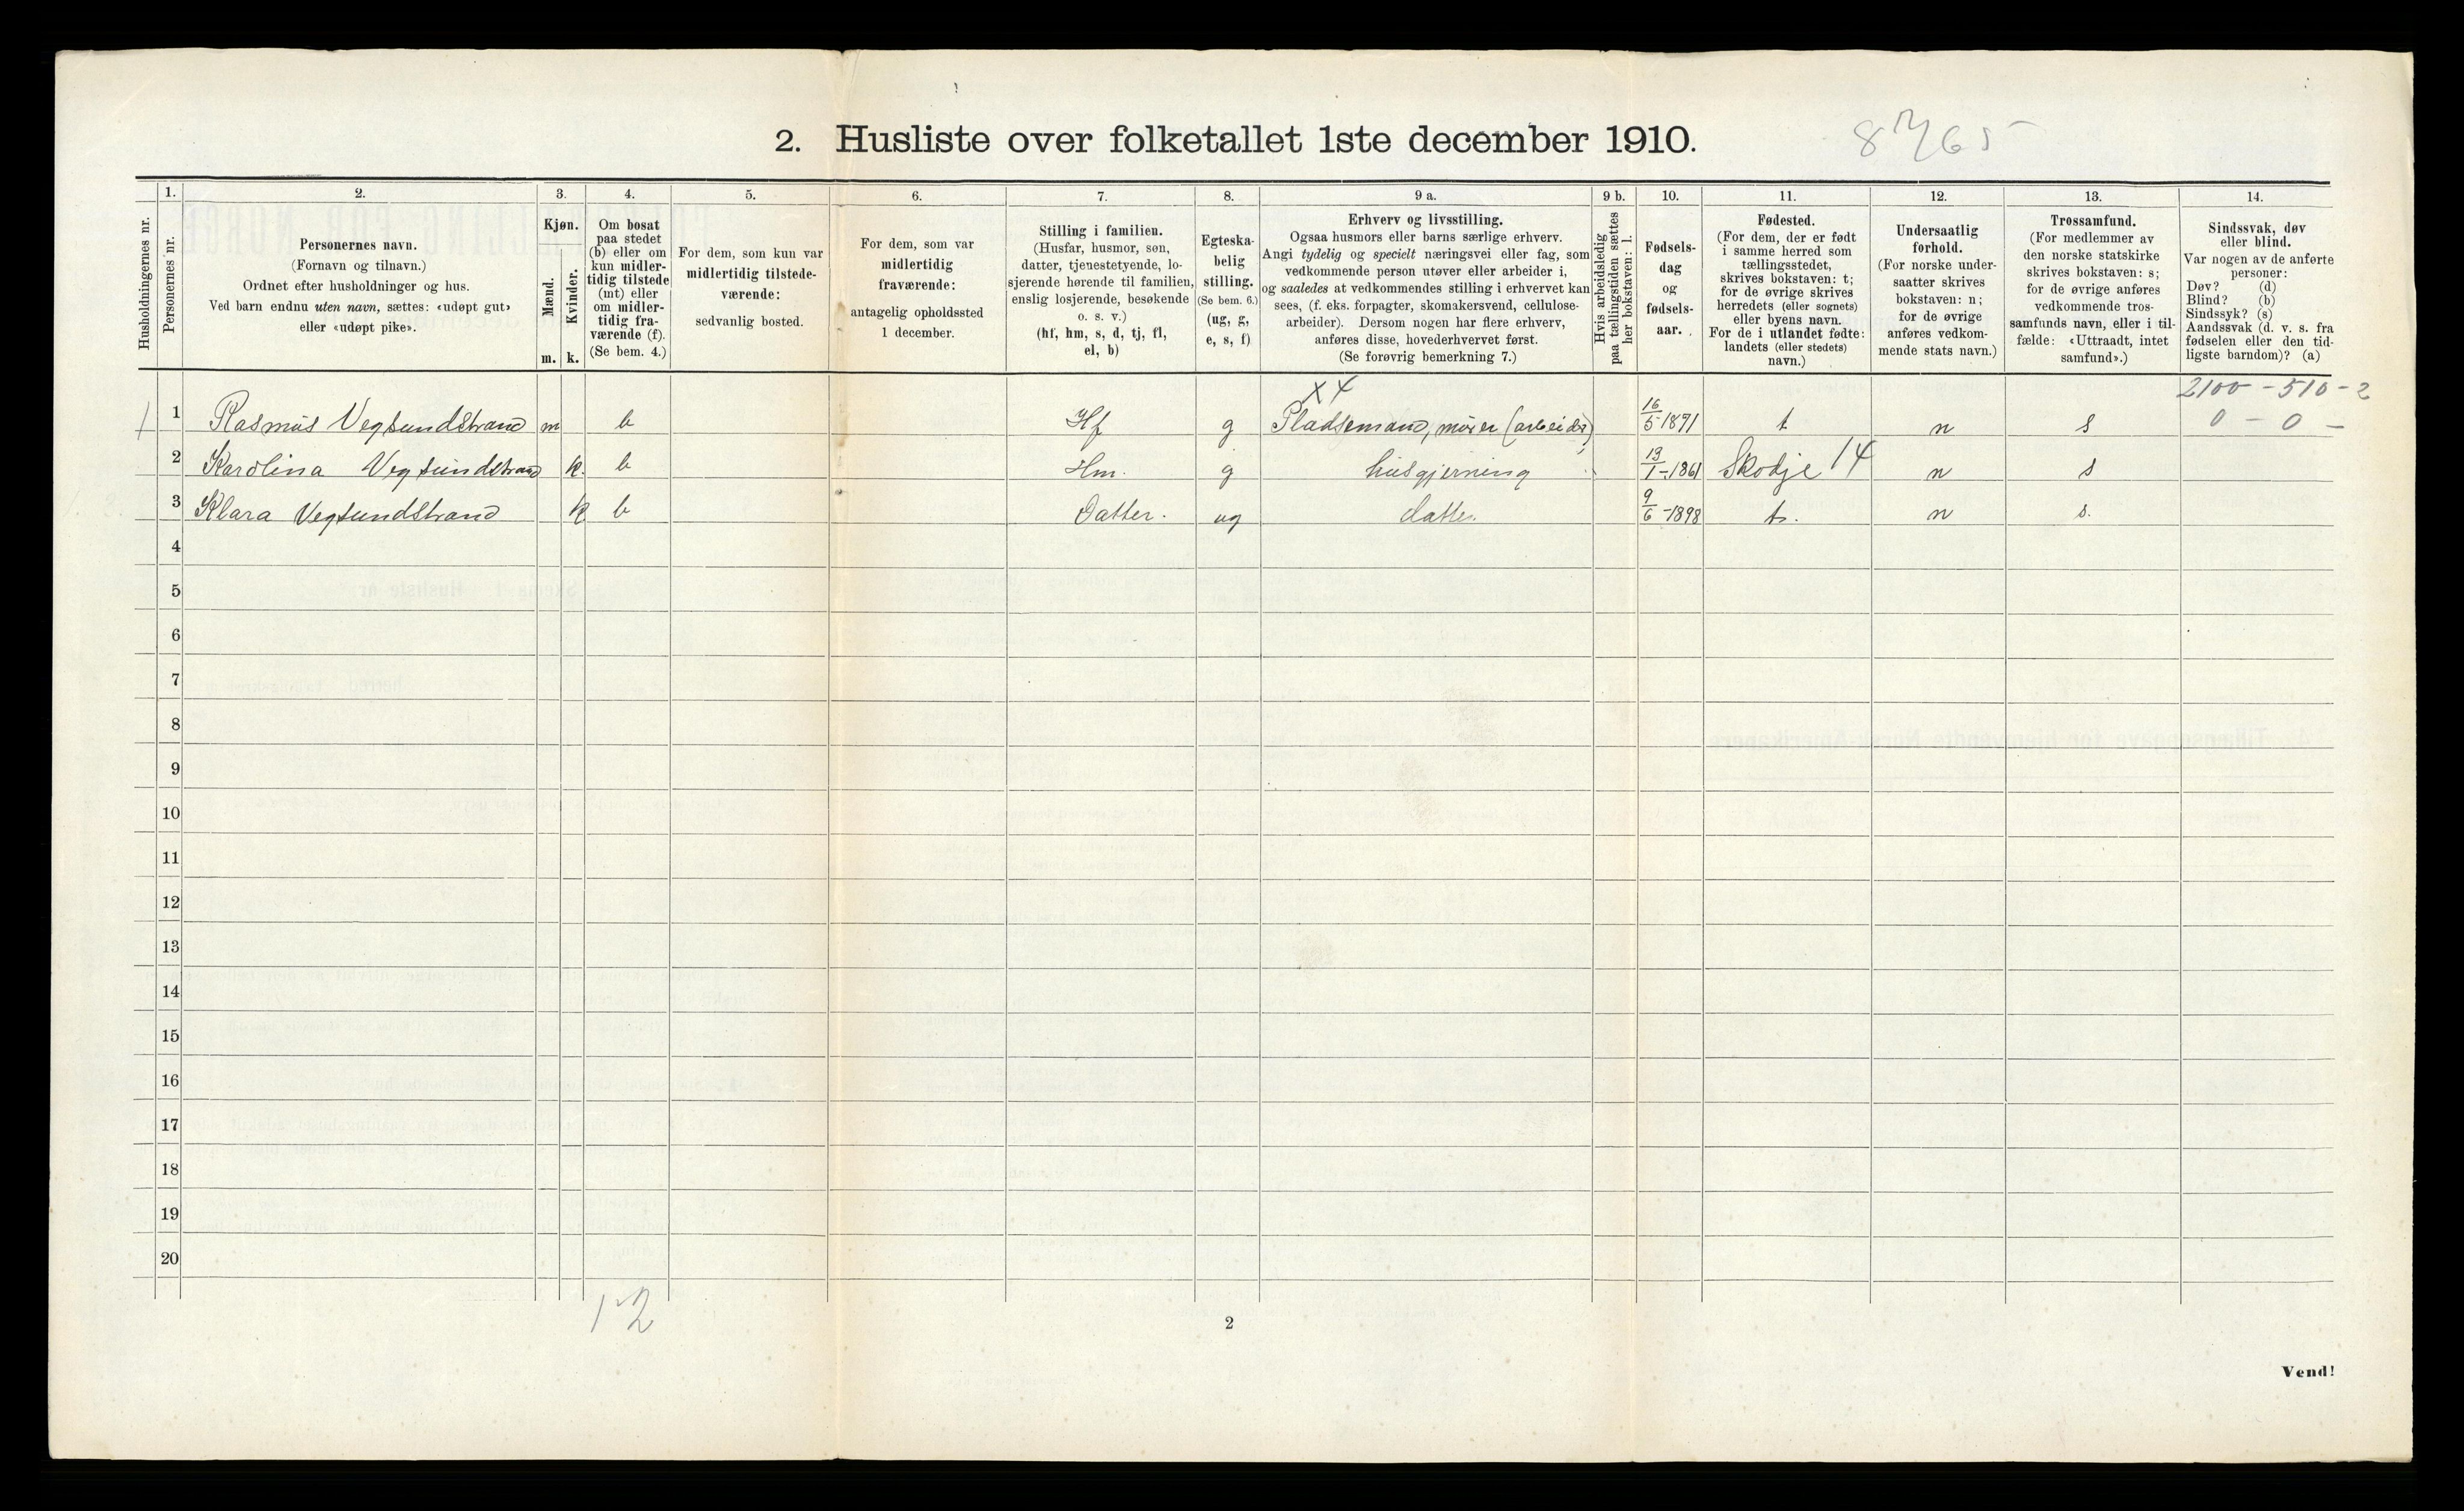 2. Husliste over folketallet 1ste december 1910.
Husholdningernes nr.
1.
Personernes nr.
2.
Personernes navn.
(Fornavn og tilnavn.)
Ordnet efter husholdninger og hus.
Ved barn endnu uten navn, sættes: «udøpt gut»
eller «udøpt pike».
3.
Kjøn.
Mænd.
Kvinder.
m. k.
4.
Om bosat
paa stedet
(b) eller om
kun midler-
tidig tilstede
(mt) eller
om midler-
tidig fra-
værende (f).
(Se bem. 4.)
5.
For dem, som kun var
midlertidig tilstede-
værende:
sedvanlig bosted.
6.
For dem, som var
midlertidig
fraværende:
antagelig opholdssted
1 december.
7.
Stilling i familien.
(Husfar, husmor, søn,
datter, tjenestetyende, lo-
sjerende hørende til familien,
enslig losjerende, besøkende
o. s. v.)
(hf, hm, s, d, tj, fl,
el, b)
8.
Egteska-
belig
stilling.
(Se bem. 6.)
(ug, g,
e, s, f)
9 a.
Erhverv og livsstilling.
Ogsaa husmors eller barns særlige erhverv.
Angi tydelig og specielt næringsvei eller fag, som
vedkommende person utøver eller arbeider i,
og saaledes at vedkommendes stilling i erhvervet kan
sees, (f. eks. forpagter, skomakersvend, cellulose-
arbeider). Dersom nogen har flere erhverv,
anføres disse, hovederhvervet først.
(Se forøvrig bemerkning 7.)
9 b.
Hvis arbeidsledig
paa tællingstiden sættes
her bokstaven: l.
10.
Fødsels-
dag
og
fødsels-
aar.
11.
Fødested.
(For dem, der er født
i samme herred som
tællingsstedet,
skrives bokstaven: t;
for de øvrige skrives
herredets (eller sognets)
eller byens navn.
For de i utlandet fødte:
landets (eller stedets)
navn.)
12.
Undersaatlig
forhold.
(For norske under-
saatter skrives
bokstaven: n;
for de øvrige
anføres vedkom-
mende stats navn.)
13.
Trossamfund.
(For medlemmer av
den norske statskirke
skrives bokstaven: s;
for de øvrige anføres
vedkommende tros-
samfunds navn, eller i til-
fælde: «Uttraadt, intet
samfund».)
14.
Sindssvak, døv
eller blind.
Var nogen av de anførte
personer:
Døv? (d)
Blind? (b)
Sindssyk? (s)
Aandssvak (d. v. s. fra
fødselen eller den tid-
ligste barndom)? (a)
x 4
2100 - 510 - 2
0 - 0 -
1 Rasmus Vegsundstrand m b Hf g Pladsemand, murer (arbeider) 16/5 1871 t n s
2 Karolina Vegsundstrand k. b Hm. g husgjerning 13/1-1861 Skodje 14 n s
3 Klara Vegsundstrand k b Datter. ug datter. 9/6-1898 t. n s.
4
5
6
7
8
9
10
11
12
13
14
15
16
17
18
19
20
1-2
2
Vend!